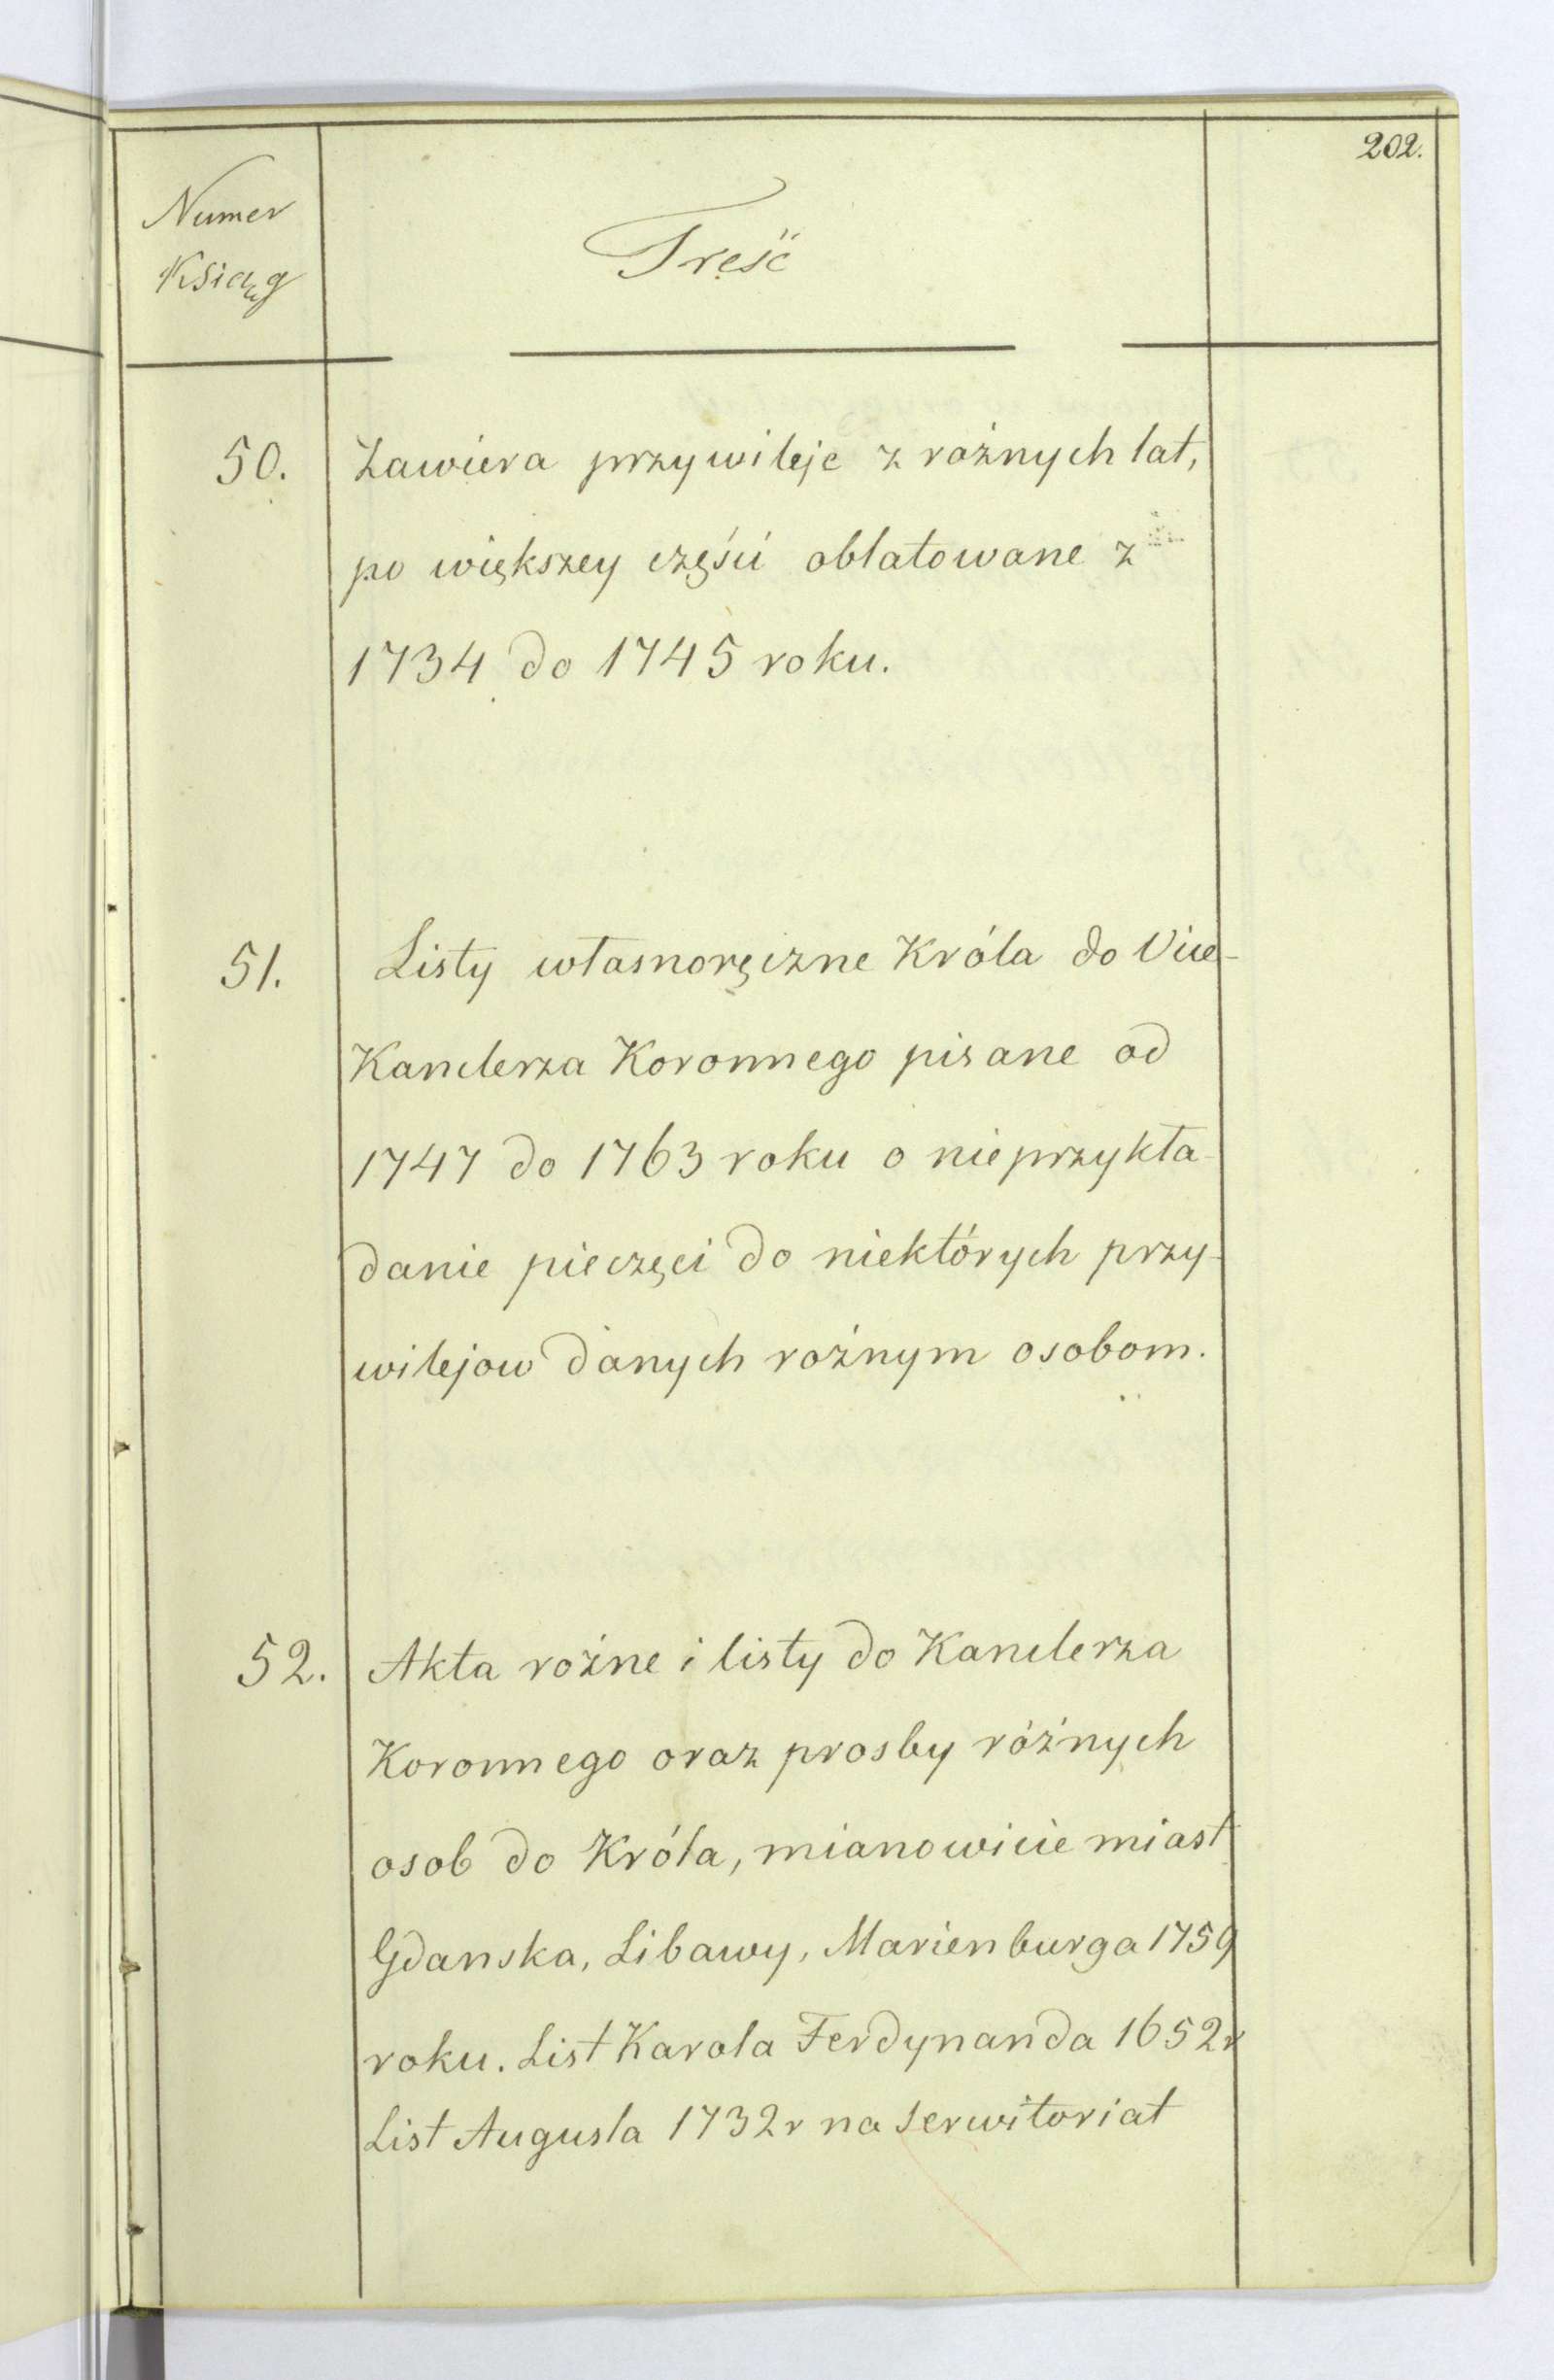 202.
Numer
Ksiąg
Treść
50. Zawiera przywileje z rożnych lat,
po większey części oblatowane z
1734 do 1745 roku.
51. Listy własnoręczne Króla do Vice-
Kanclerza Koronnego pisane od
1747 do 1763 roku o nieprzykła-
danie pieczęci do niektórych przy-
wilejow danych rożnym osobom.
52. Akta rożne i listy do Kanclerza
Koronnego oraz prosby różnych
osob do Króla, mianowicie miast
Gdanska, Libawy, Marienburga 1759
roku. List Karola Ferdynanda 1652 r
List Augusta 1732 r na serwitoriat